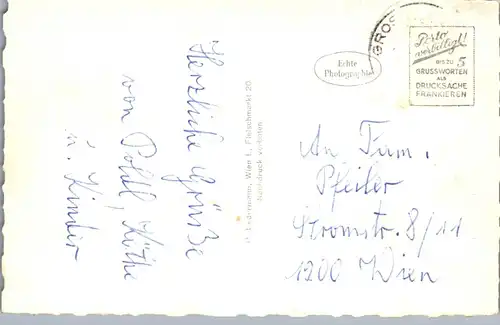 Herzliche Grüße
von Poldl, Käthe
u. Kinder
Wien I., Fleischmarkt 20
Nachdruck verboten
Echte
Photographie
GROS
Porto
verbilligt!
BIS ZU 5
GRUSSWORTEN
ALS
DRUCKSACHE
FRANKIEREN
An Fam.
Pfeiler
Stromstr. 8/11
1200 Wien